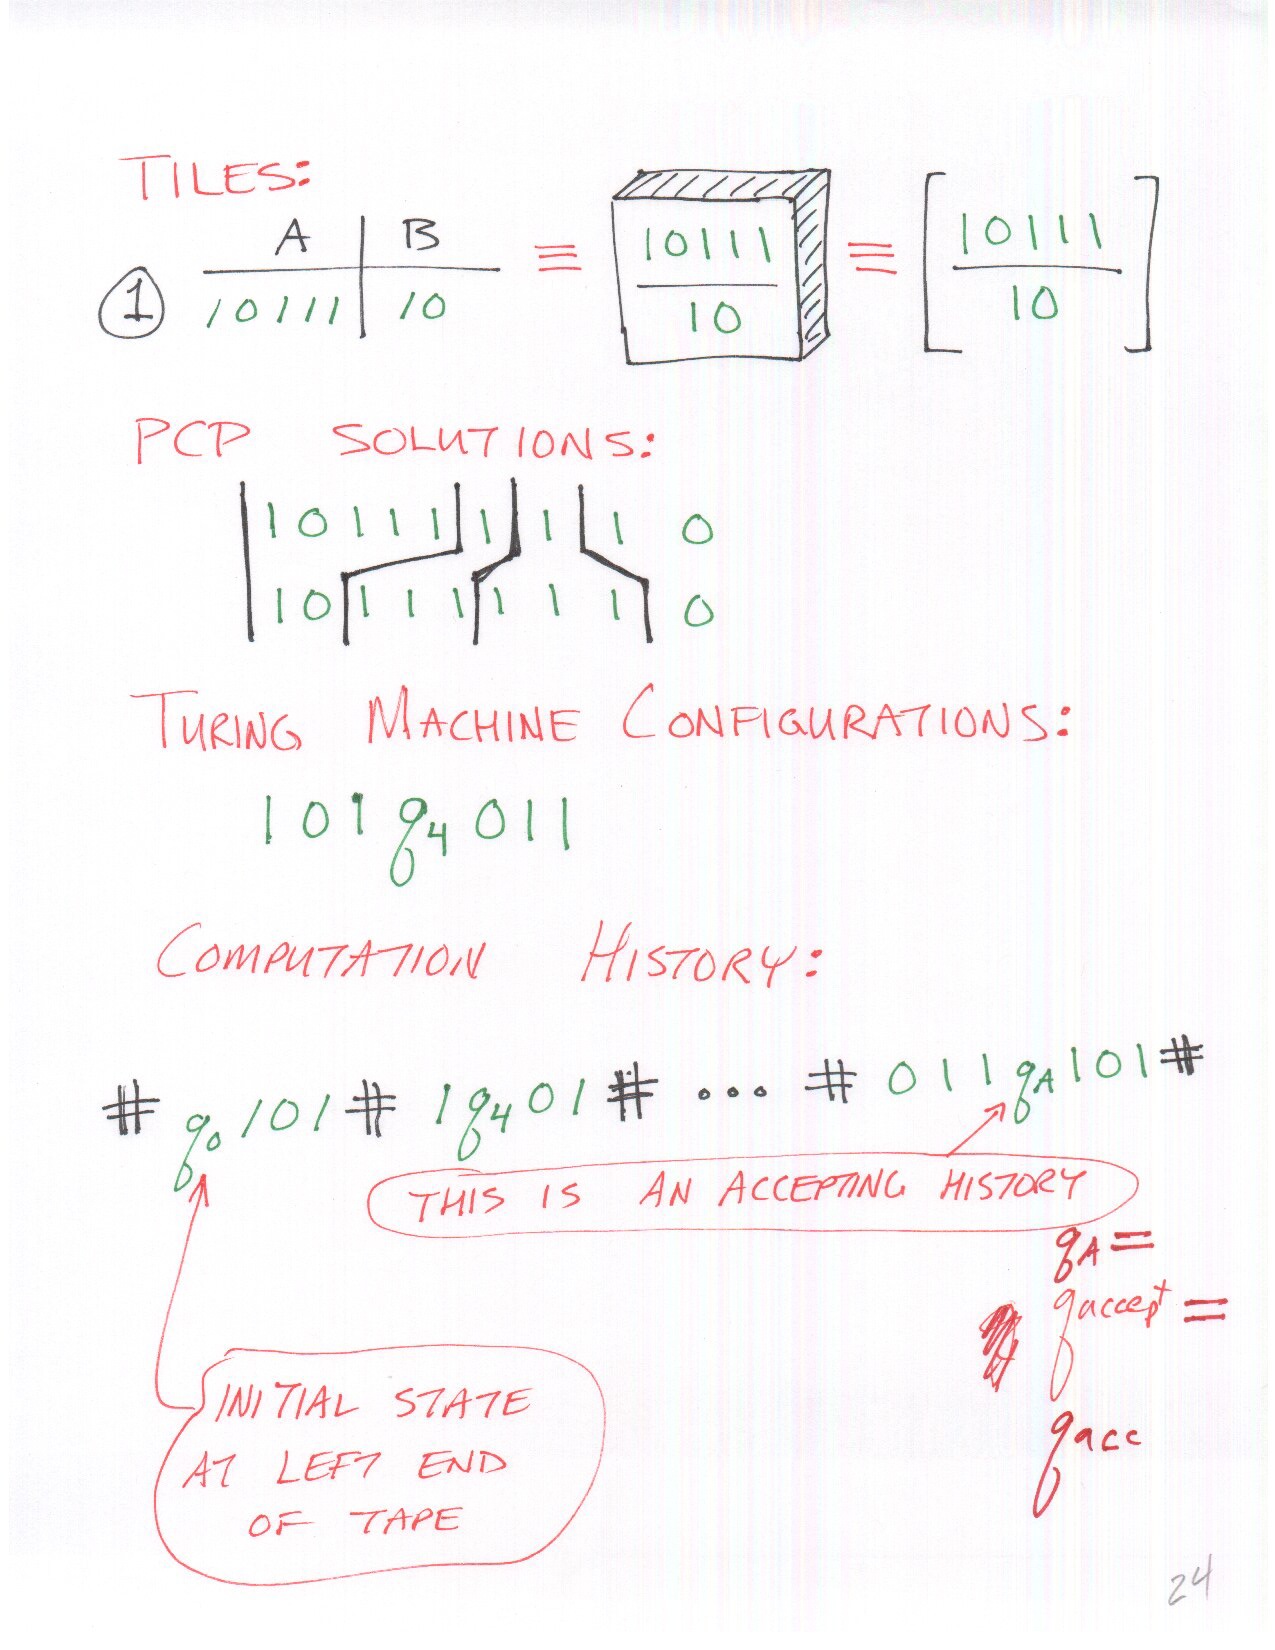 TILES:
A | B ≡ 10111 ≡ [10111
① 10111 | 10 10 10]
PCP SOLUTIONS:
| 10111 | 1 | 1 | 1 0
| 10 | 111 | 1 1 1 | 0
TURING MACHINE CONFIGURATIONS:
101q₄011
COMPUTATION HISTORY:
# q₀101 # 1q₄01 # ... # 011qA101 #
THIS IS AN ACCEPTING HISTORY
qA =
qaccept =
qacc
INITIAL STATE
AT LEFT END
OF TAPE
24